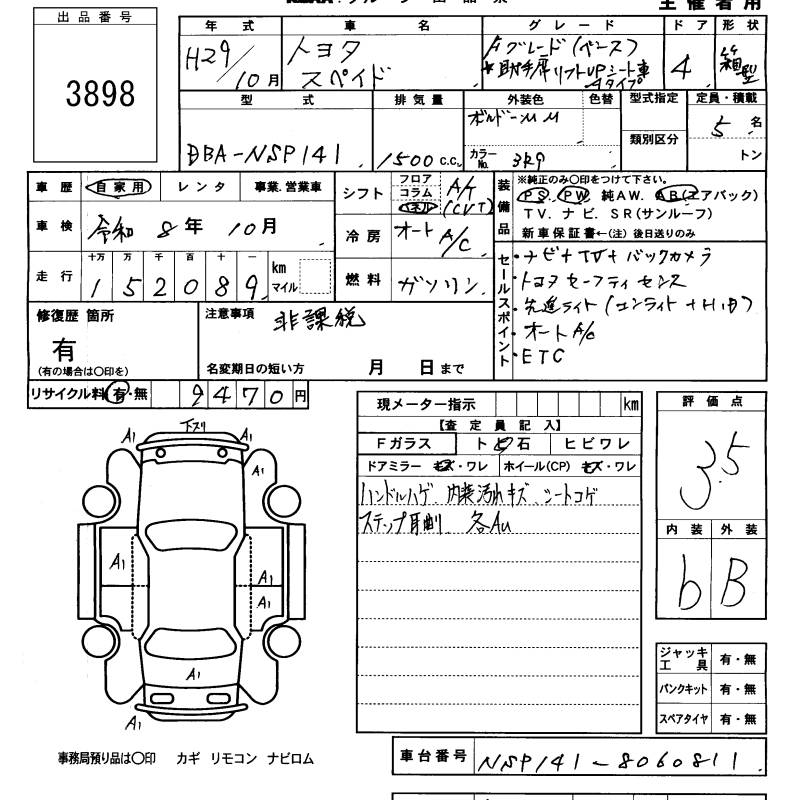 主催者用
出品番号
3898
年式 車名 グレード ドア 形状
H29/10月 トヨタ スペイド Fグレード(ベース) 4 箱型
*助手席リフトUPシート車 Aタイプ
型式 排気量 外装色 色替 型式指定 定員・積載
DBA-NSP141 1500 c.c. ボルドーMM 5名
カラーNo. 3R9 類別区分 トン
車歴 自家用 レンタ 事業.営業車
車検 令和8年10月
走行 十万 万 千 百 十 一
152089 km マイル
シフト フロア コラム パネル A/T (CVT)
冷房 オートA/C
燃料 ガソリン
装備品 ※純正のみ〇印をつけて下さい。
PS. PW 純AW. AB(エアバック)
TV. ナビ. SR(サンルーフ)
新車保証書←(注)後日送りのみ
セールスポイント
・ナビ+TV+バックカメラ
・トヨタセーフティセンス
・先進ライト(コンライト+
・オートA/C
・ETC
修復歴 箇所
有
(有の場合は〇印を)
注意事項 非課税
名変期日の短い方 月 日まで
リサイクル料 有・無 9470円
現メーター指示 km
【査定員記入】
Fガラス トビ石 ヒビワレ
ドアミラー キズ・ワレ ホイール(CP) キズ・ワレ
ハンドルハゲ、内装汚れキズ、シートコゲ
ステップ 各AU
評価点
3.5
内装 外装
b B
ジャッキ工具 有・無
パンクキット 有・無
スペアタイヤ 有・無
A1 下スリ A1
A1
A1 A1
A1
A1
A1
事務局預り品は〇印 カギ リモコン ナビロム
車台番号 NSP141-8060811